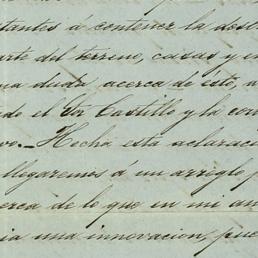 tantes á contener la dest
arte del terreno, casas y u
na duda acerca de éste, a
do el Sor Castillo y la cor
vo.- Hecha esta aclaraci
llegaremos á un arreglo p
erca de lo que en mi an
ia una innovacion, pue